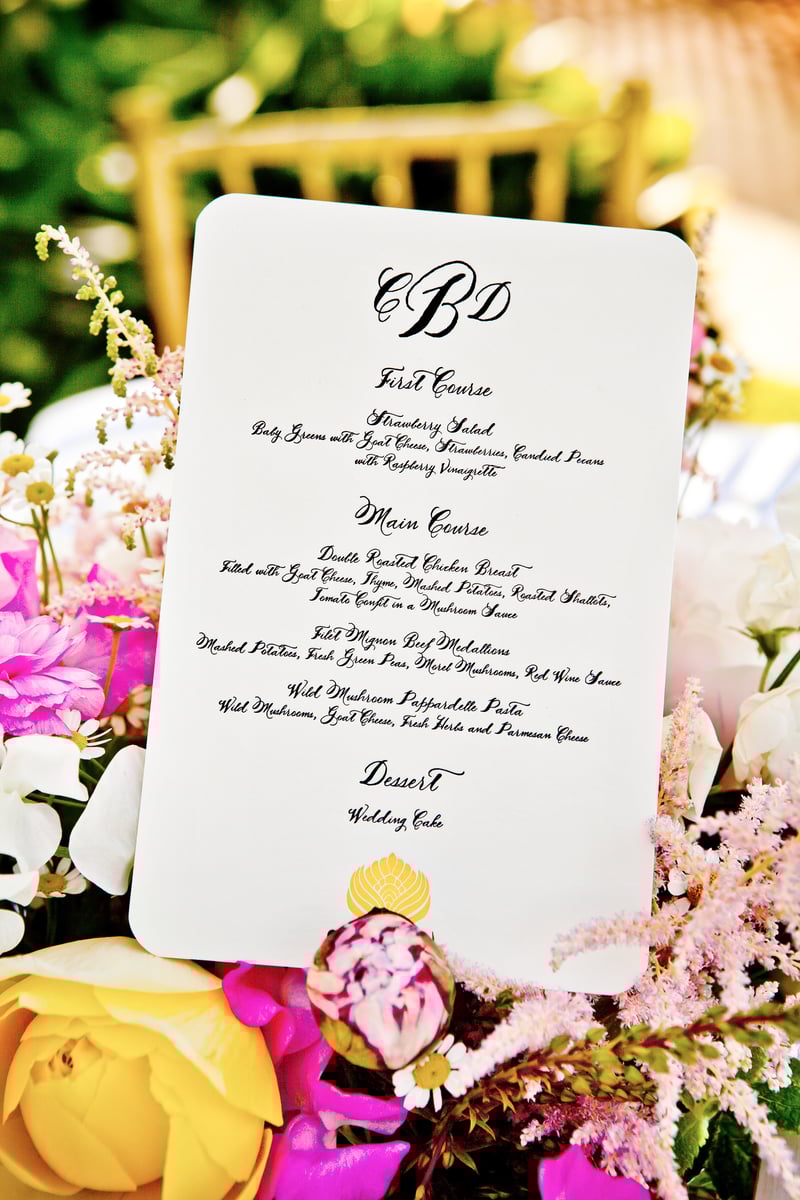 CBD
First Course
Strawberry Salad
Baby Greens with Goat Cheese, Strawberries, Candied Pecans
with Raspberry Vinaigrette
Main Course
Double Roasted Chicken Breast
Filled with Goat Cheese, Thyme, Mashed Potatoes, Roasted Shallots,
Tomato Confit in a Mushroom Sauce
Filet Mignon Beef Medallions
Mashed Potatoes, Fresh Green Peas, Morel Mushrooms, Red Wine Sauce
Wild Mushroom Pappardelle Pasta
Wild Mushrooms, Goat Cheese, Fresh Herbs and Parmesan Cheese
Dessert
Wedding Cake